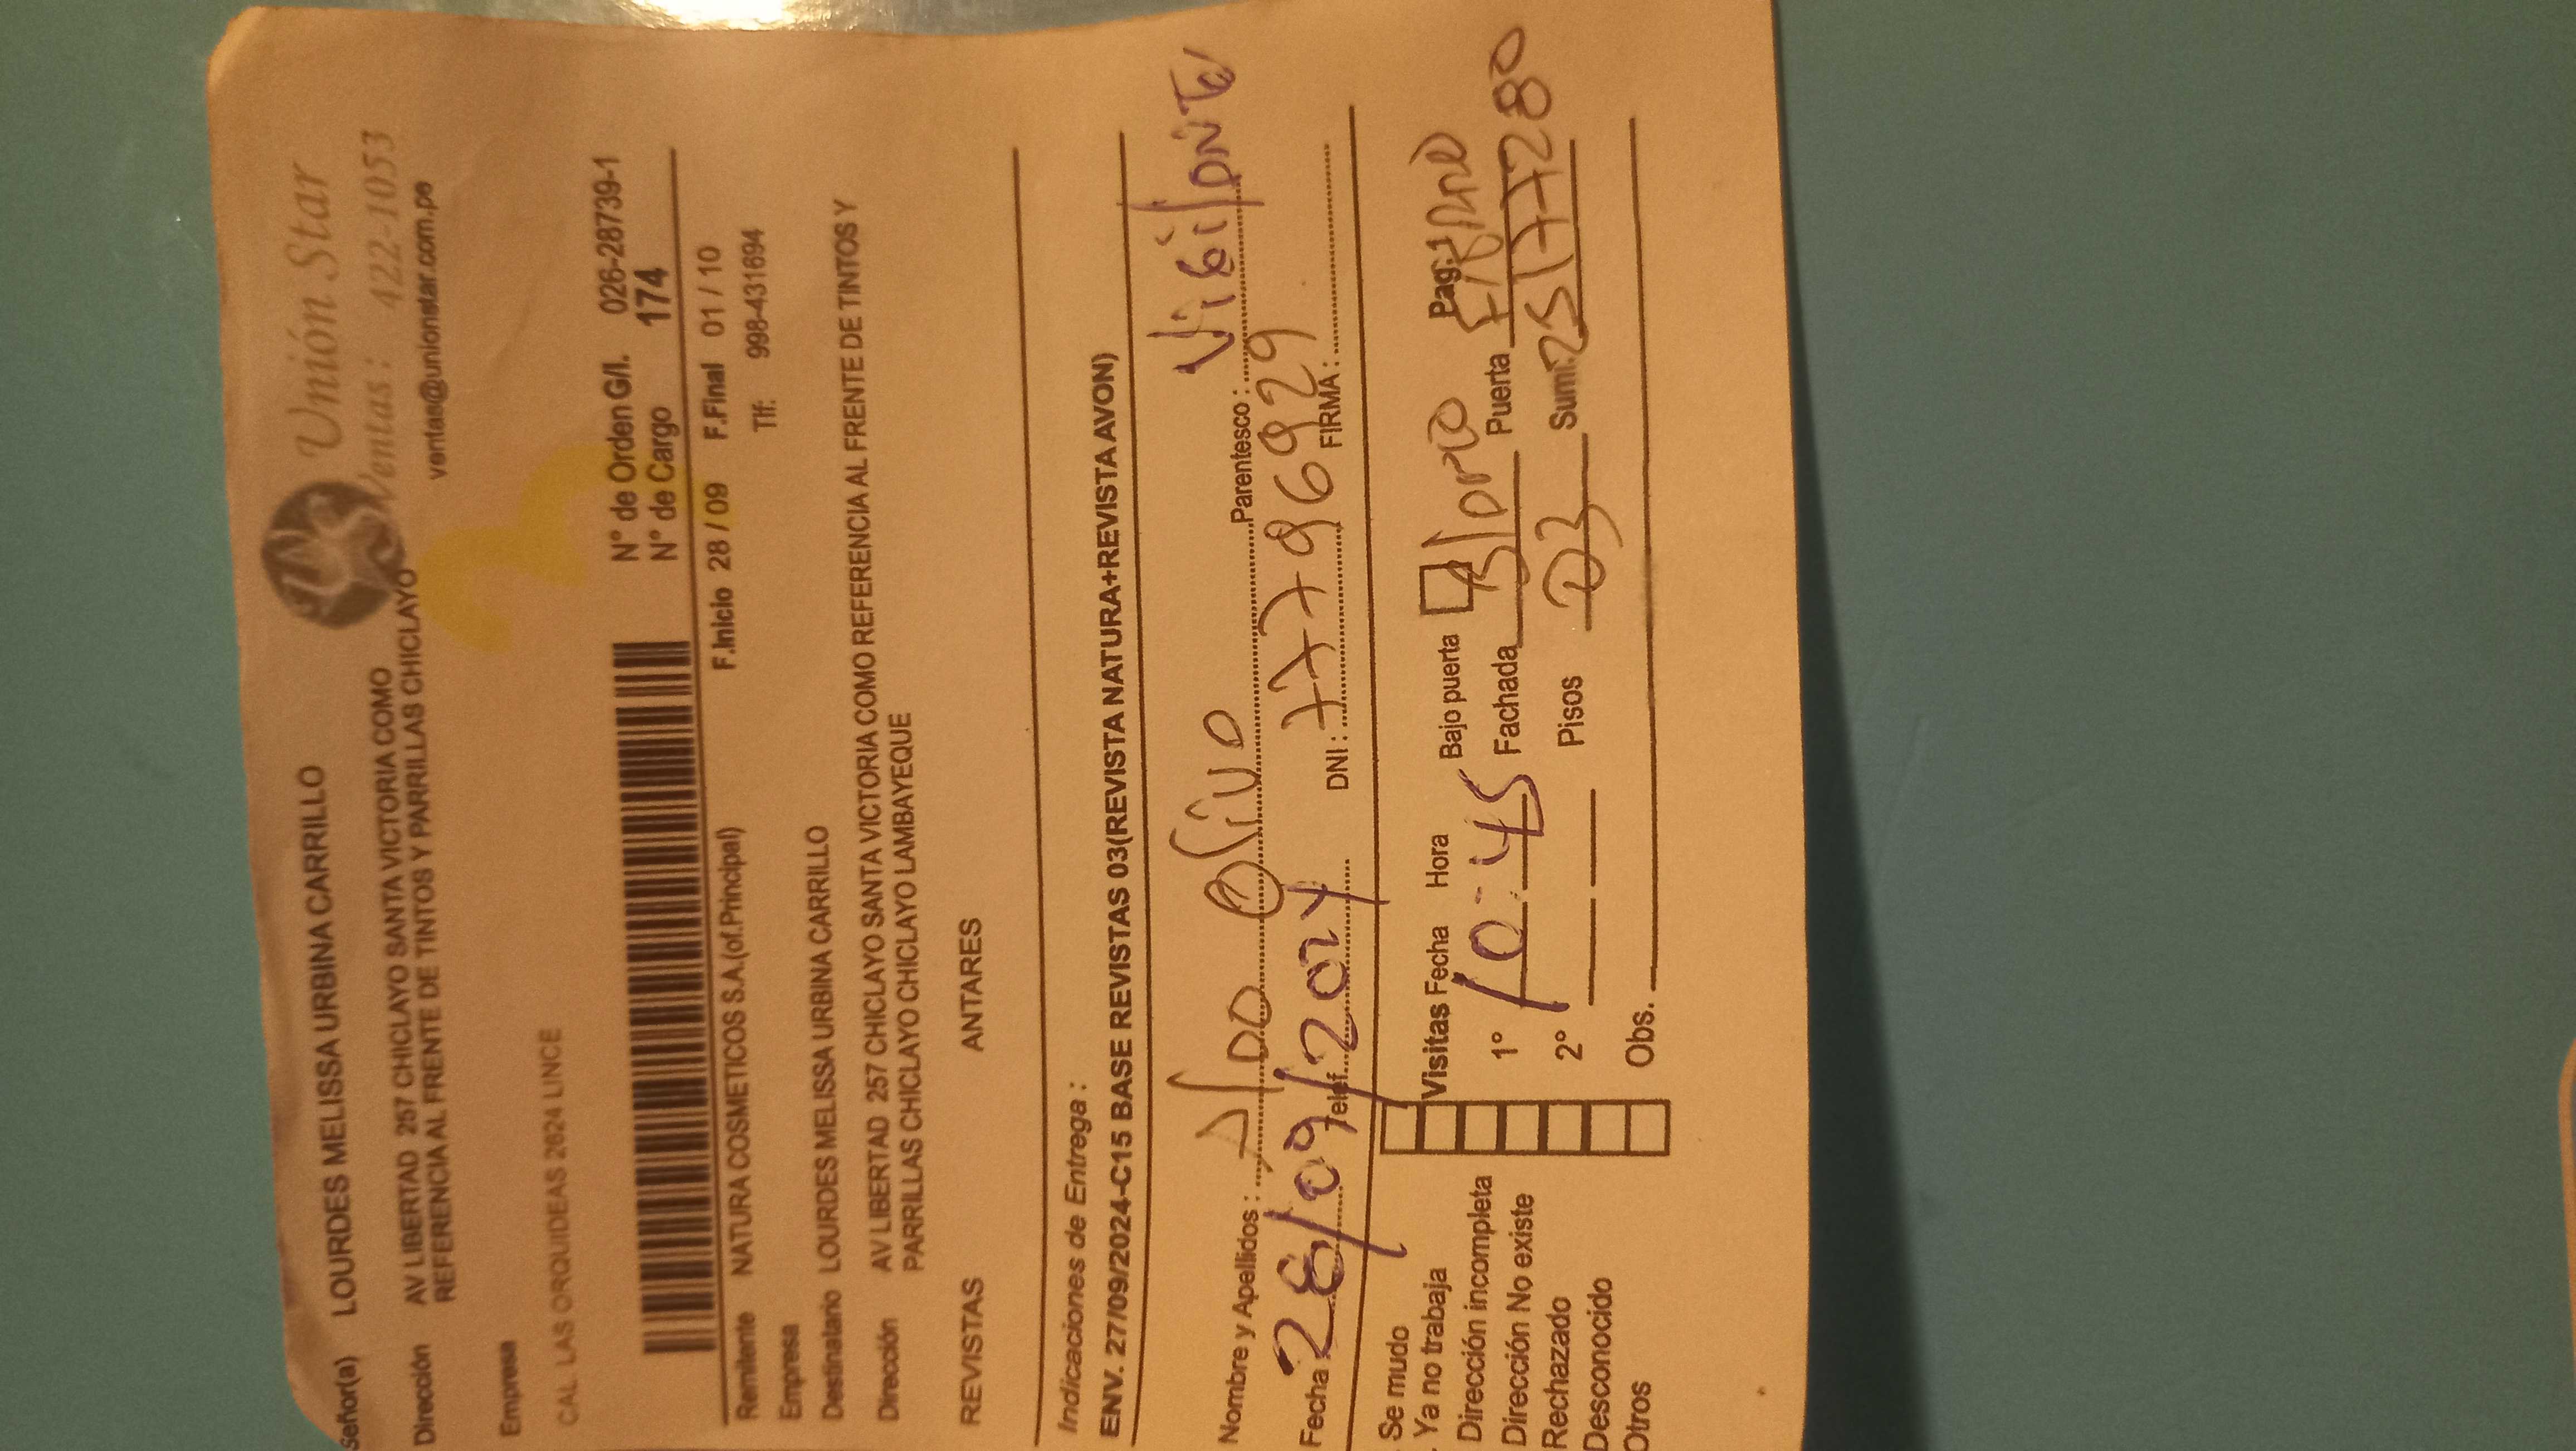 Unión Star
Ventas: 422-1053
ventas@unionstar.com.pe
Señor(a) LOURDES MELISSA URBINA CARRILLO
Dirección AV LIBERTAD 257 CHICLAYO SANTA VICTORIA COMO
REFERENCIA AL FRENTE DE TINTOS Y PARRILLAS CHICLAYO
Empresa
CAL LAS ORQUIDEAS 2624 LINCE
N° de Orden G/I. 026-28739-1
N° de Cargo 174
F.Inicio 28 / 09 F.Final 01 / 10
Remitente NATURA COSMETICOS S.A.(of.Principal)
Tlf: 998-431694
Empresa
Destinatario LOURDES MELISSA URBINA CARRILLO
Dirección AV LIBERTAD 257 CHICLAYO SANTA VICTORIA COMO REFERENCIA AL FRENTE DE TINTOS Y
PARRILLAS CHICLAYO CHICLAYO LAMBAYEQUE
REVISTAS ANTARES
Indicaciones de Entrega :
ENV. 27/09/2024-C15 BASE REVISTAS 03(REVISTA NATURA+REVISTA AVON)
Nombre y Apellidos : Aldo Oliva Parentesco : Vigilante
Fecha 28/09/2024 Telef. DNI : 77796929 FIRMA :
Se mudo
Ya no trabaja Visitas Fecha Hora Bajo puerta Pag:1
Dirección incompleta 1° 10:45 Fachada Puerta
Dirección No existe 2° Pisos 03 Sumi: 25177280
Rechazado
Desconocido Obs.
Otros